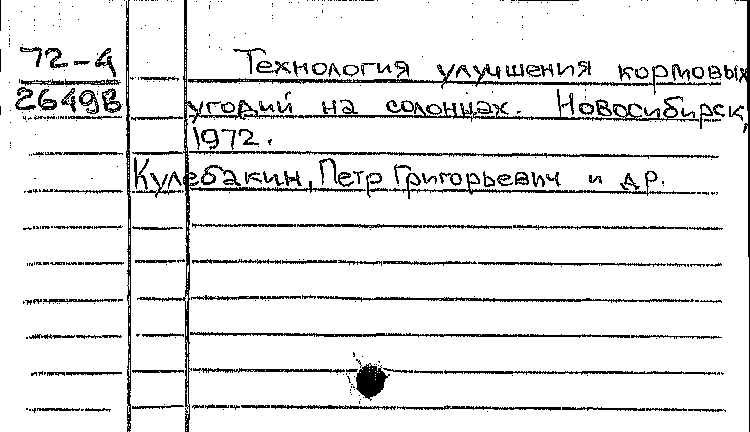 72-4 Технология улучшения кормовых
26498 угодий на солонцах. Новосибирск,
1972.
Кулебакин, Петр Григорьевич и др.